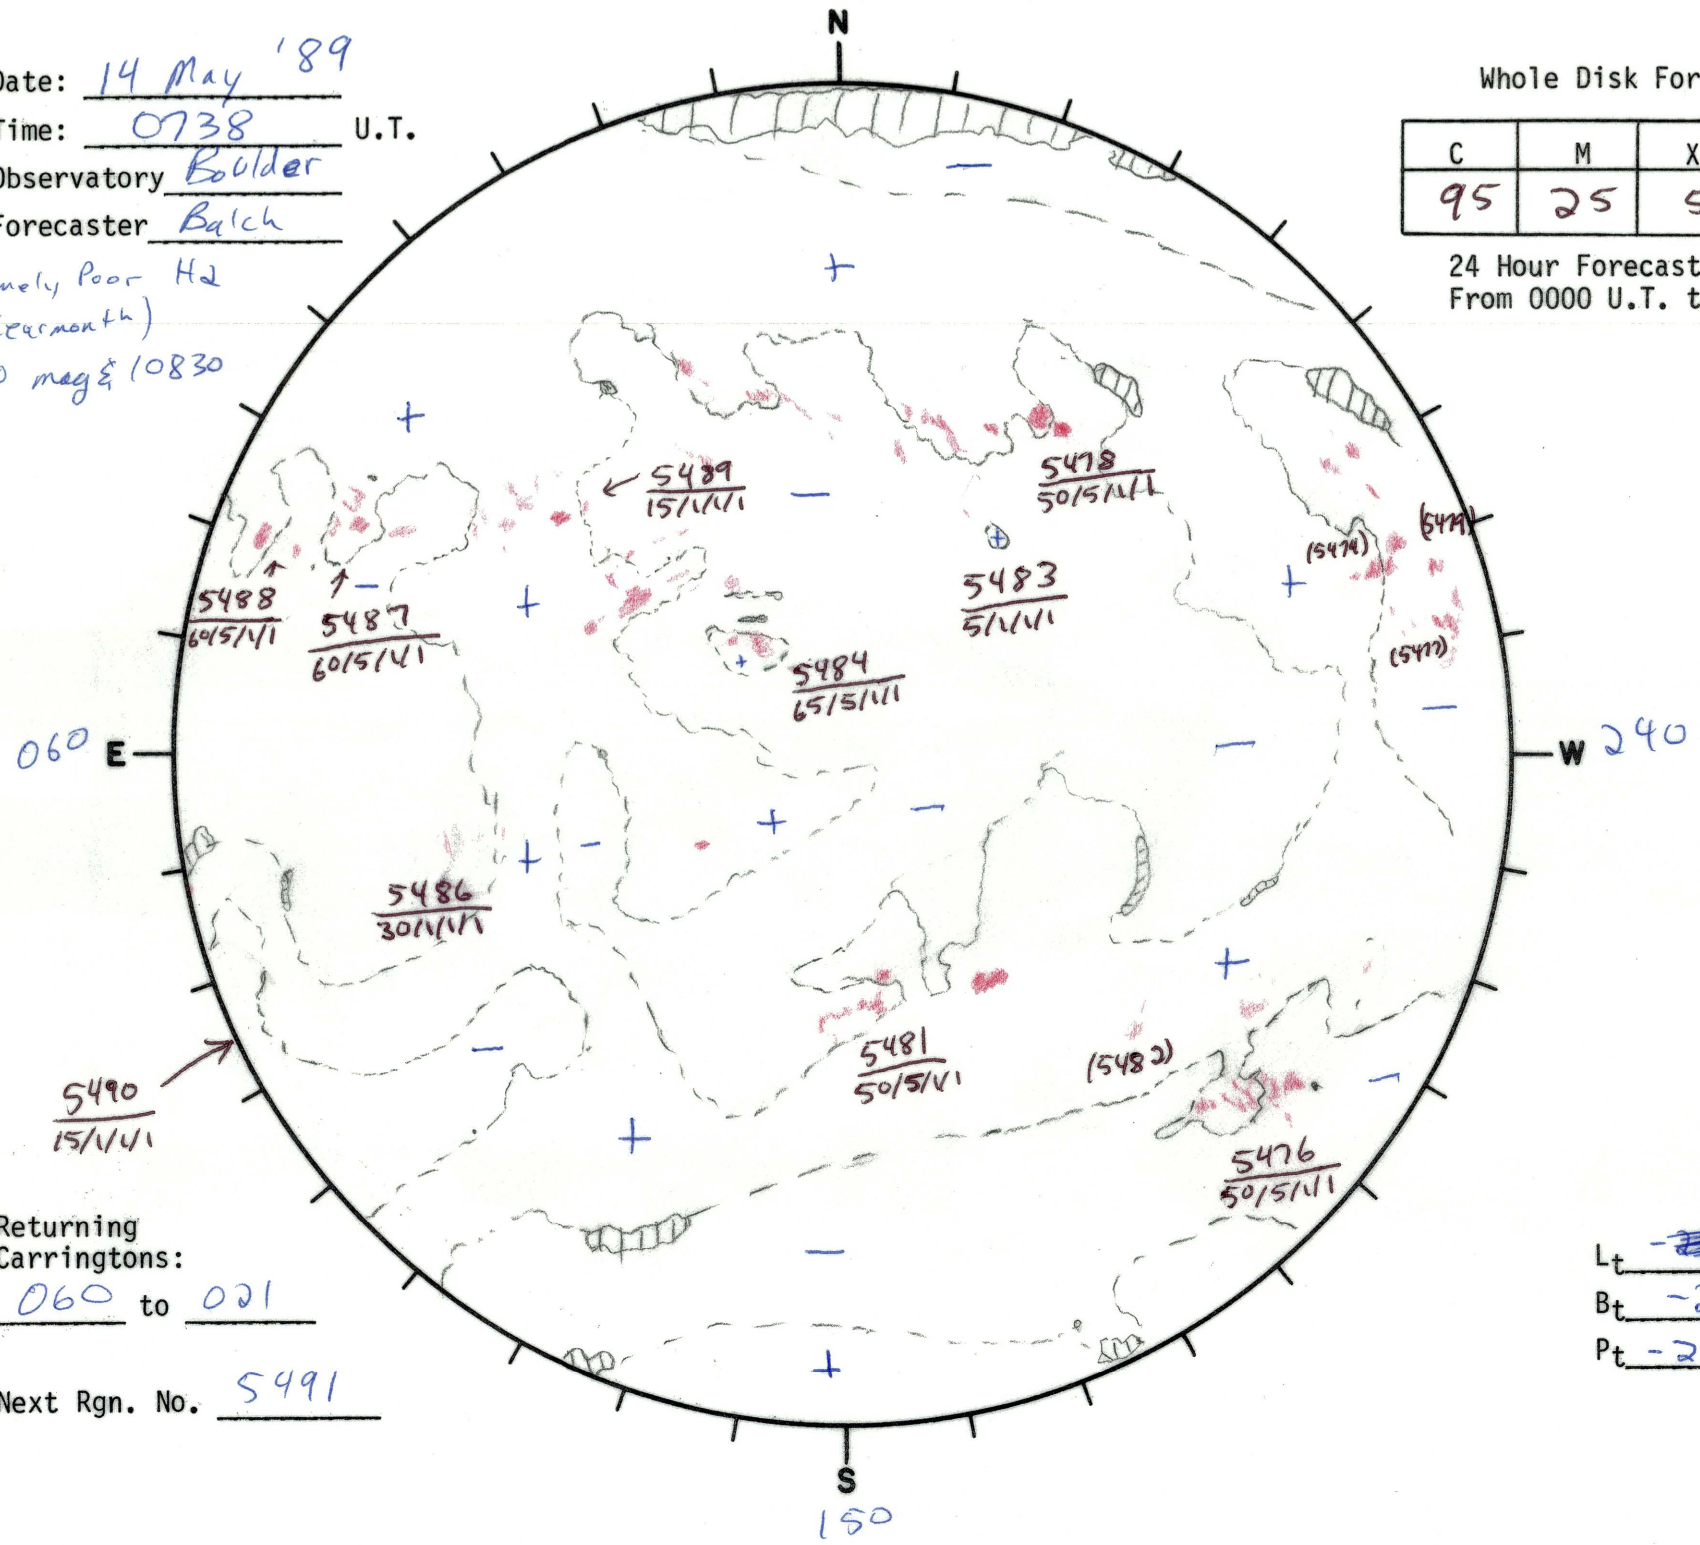 N
Date: 14 May '89
Time: 0738 U.T.
Observatory Boulder
Forecaster Balch
mely Poor Hα
(earmonth)
mag & 10830
Whole Disk For
C M X
95 25 5
24 Hour Forecast
From 0000 U.T. t
5489
15/1/1/1
5478
50/5/1/1
(5479)
(5474)
5488
60/5/1/1
5487
60/5/1/1
5483
5/1/1/1
(5477)
5484
65/5/1/1
060 E
W 240
5486
30/1/1/1
5481
50/5/1/1
(5482)
5490
15/1/1/1
5476
50/5/1/1
Returning
Carringtons:
060 to 021
Next Rgn. No. 5491
Lt -
Bt -2
Pt -2
S
150